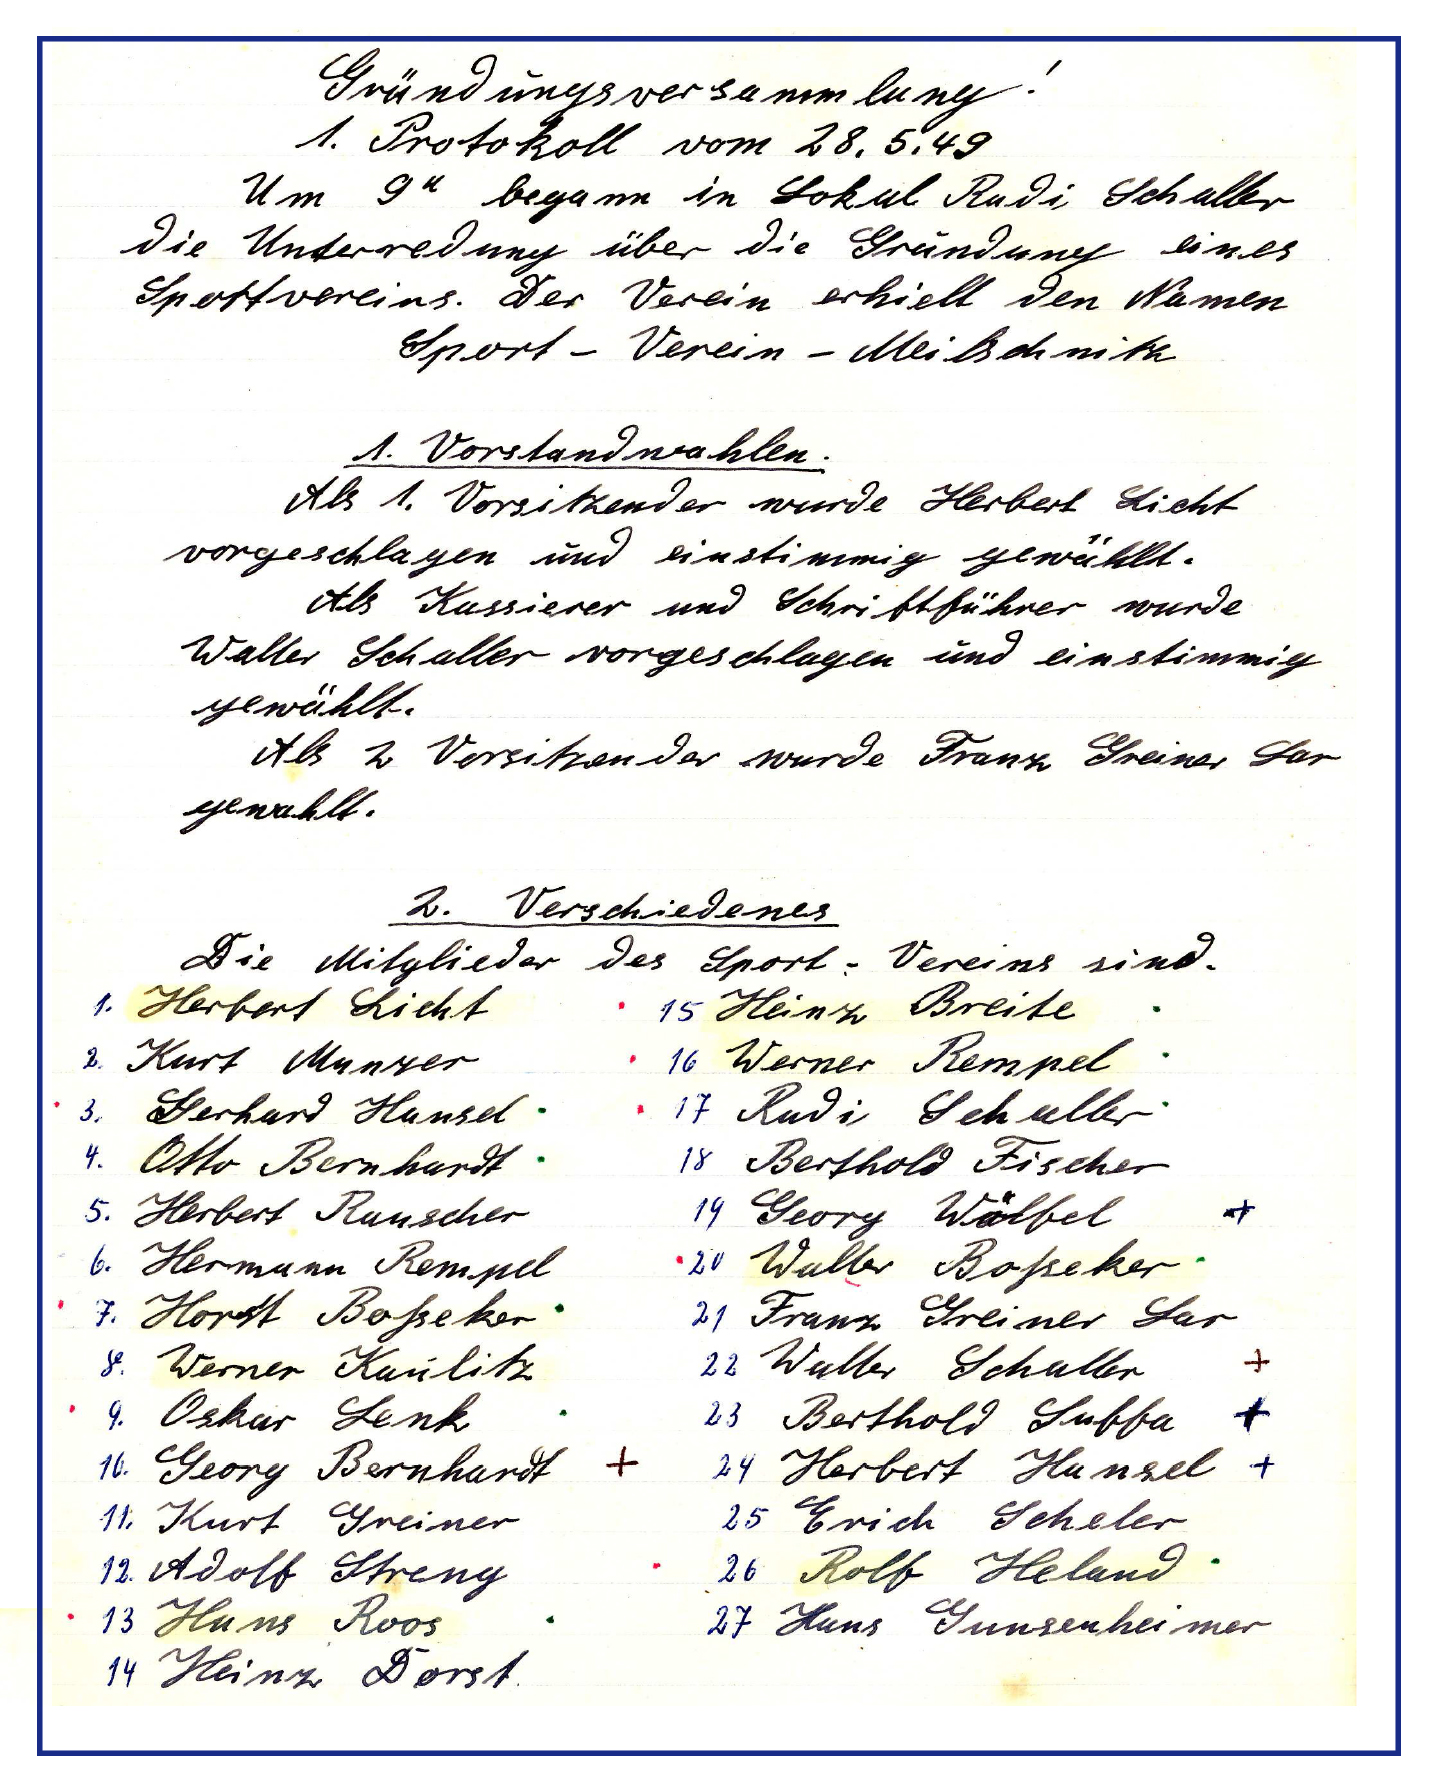 Gründungsversammlung!
1. Protokoll vom 28.5.49
Um 9ᵘ begann in Lokal Rudi Schaller
die Unterredung über die Gründung eines
Sportvereins. Der Verein erhielt den Namen
Sport - Verein - Meilschnitz
1. Vorstandwahlen.
Als 1. Vorsitzender wurde Herbert Licht
vorgeschlagen und einstimmig gewählt.
Als Kassierer und Schriftführer wurde
Walter Schaller vorgeschlagen und einstimmig
gewählt.
Als 2 Vorsitzender wurde Franz Greiner Lar
gewahlt.
2. Verschiedenes
Die Mitglieder des Sport-Vereins sind.
1. Herbert Licht
2. Kurt Munzer
3. Gerhard Hansel
4. Otto Bernhardt
5. Herbert Rauscher
6. Hermann Rempel
7. Horst Boßeker
8. Werner Kaulitz
9. Oskar Lenk
10. Georg Bernhardt +
11. Kurt Greiner
12. Adolf Streng
13 Hans Roos
14 Heinz Dorst.
15 Heinz Breite
16 Werner Rempel
17 Rudi Schaller
18 Berthold Fischer
19 Georg Wölfel +
20 Walter Boßeker
21 Franz Greiner Lar
22 Walter Schaller +
23 Berthold Suffa +
24 Herbert Hansel +
25 Erich Scheler
26 Rolf Heland
27 Hans Gunsenheimer